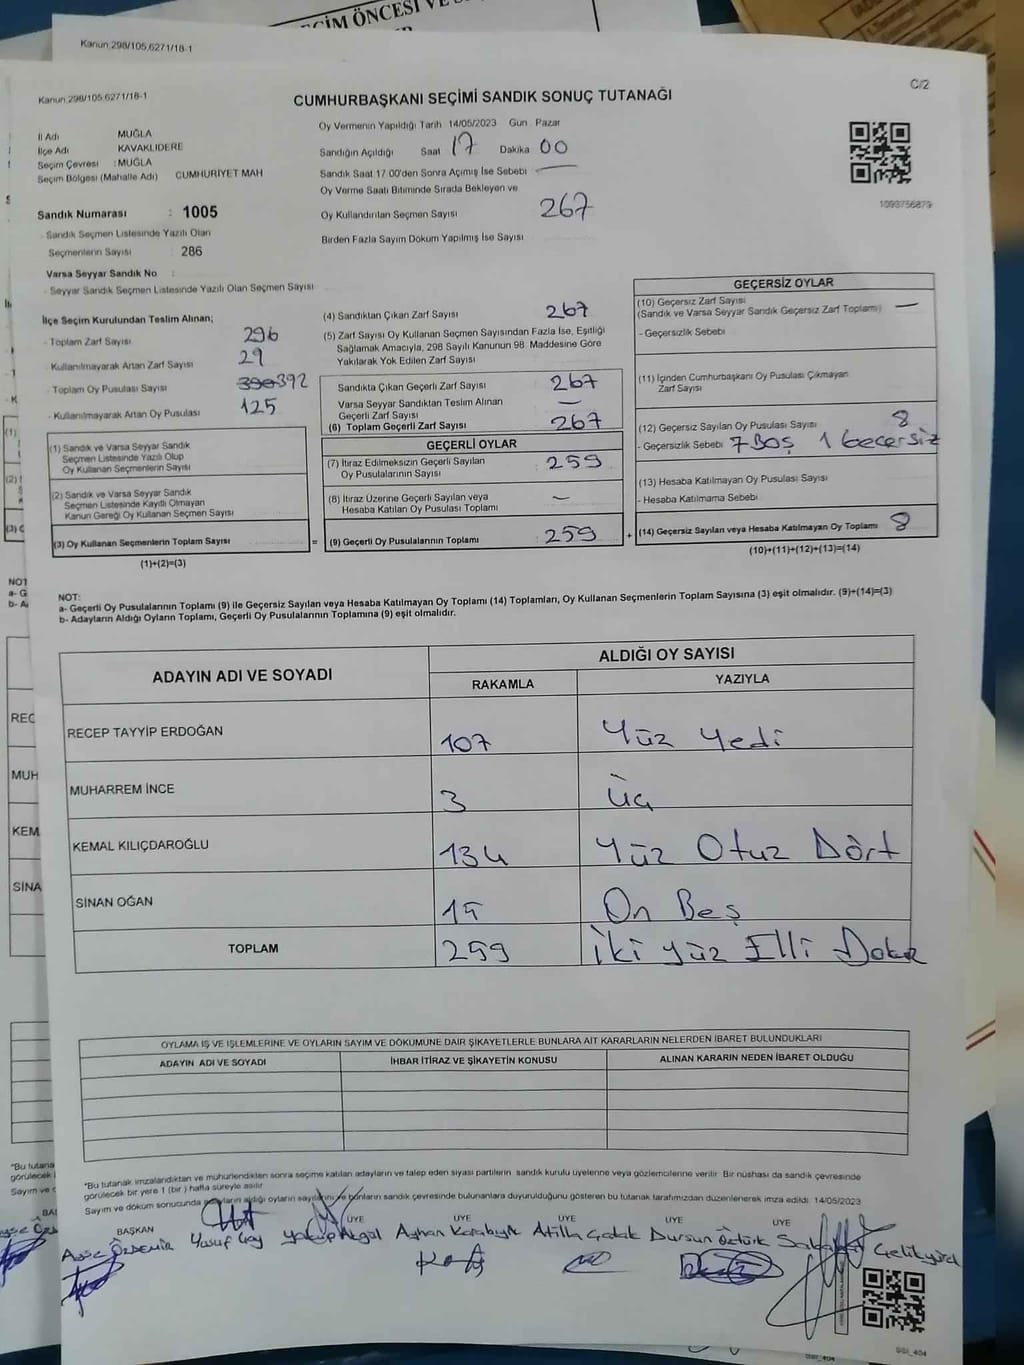 Kanun 298/105,6271/18-1
Kanun 298/105,6271/18-1
C/2
CUMHURBAŞKANI SEÇİMİ SANDIK SONUÇ TUTANAĞI
İl Adı MUĞLA
İlçe Adı KAVAKLIDERE
Seçim Çevresi : MUĞLA
Seçim Bölgesi (Mahalle Adı) CUMHURİYET MAH
Sandık Numarası : 1005
- Sandık Seçmen Listesinde Yazılı Olan
Seçmenlerin Sayısı 286
Varsa Seyyar Sandık No :
- Seyyar Sandık Seçmen Listesinde Yazılı Olan Seçmen Sayısı
Oy Vermenin Yapıldığı Tarih 14/05/2023 Gün Pazar
Sandığın Açıldığı Saat 17 Dakika 00
Sandık Saat 17.00'den Sonra Açımış İse Sebebi —
Oy Verme Saati Bitiminde Sırada Bekleyen ve
Oy Kullandırılan Seçmen Sayısı 267
Birden Fazla Sayım Döküm Yapılmış İse Sayısı
1093756879
İlçe Seçim Kurulundan Teslim Alınan;
- Toplam Zarf Sayısı 296
- Kullanılmayarak Artan Zarf Sayısı 29
- Toplam Oy Pusulası Sayısı 390 392
- Kullanılmayarak Artan Oy Pusulası 125
(1) Sandık ve Varsa Seyyar Sandık
Seçmen Listesinde Yazılı Olup
Oy Kullanan Seçmenlerin Sayısı
(2) Sandık ve Varsa Seyyar Sandık
Seçmen Listesinde Kayıtlı Olmayan
Kanun Gereği Oy Kullanan Seçmen Sayısı
(3) Oy Kullanan Seçmenlerin Toplam Sayısı
(1)+(2)=(3)
(4) Sandıktan Çıkan Zarf Sayısı 267
(5) Zarf Sayısı Oy Kullanan Seçmen Sayısından Fazla İse, Eşitliği
Sağlamak Amacıyla, 298 Sayılı Kanunun 98. Maddesine Göre
Yakılarak Yok Edilen Zarf Sayısı
Sandıkta Çıkan Geçerli Zarf Sayısı 267
Varsa Seyyar Sandıktan Teslim Alınan
Geçerli Zarf Sayısı —
(6) Toplam Geçerli Zarf Sayısı 267
GEÇERLİ OYLAR
(7) İtiraz Edilmeksizin Geçerli Sayılan
Oy Pusulalarının Sayısı : 259
(8) İtiraz Üzerine Geçerli Sayılan veya
Hesaba Katılan Oy Pusulası Toplamı : —
= (9) Geçerli Oy Pusulalarının Toplamı : 259 +
GEÇERSİZ OYLAR
(10) Geçersiz Zarf Sayısı
(Sandık ve Varsa Seyyar Sandık Geçersiz Zarf Toplamı) —
- Geçersizlik Sebebi
(11) İçinden Cumhurbaşkanı Oy Pusulası Çıkmayan
Zarf Sayısı
(12) Geçersiz Sayılan Oy Pusulası Sayısı 8
- Geçersizlik Sebebi 7 Boş 1 Geçersiz
(13) Hesaba Katılmayan Oy Pusulası Sayısı
- Hesaba Katılmama Sebebi
(14) Geçersiz Sayılan veya Hesaba Katılmayan Oy Toplamı 8
(10)+(11)+(12)+(13)=(14)
NOT:
a- Geçerli Oy Pusulalarının Toplamı (9) ile Geçersiz Sayılan veya Hesaba Katılmayan Oy Toplamı (14) Toplamları, Oy Kullanan Seçmenlerin Toplam Sayısına (3) eşit olmalıdır. (9)+(14)=(3)
b- Adayların Aldığı Oyların Toplamı, Geçerli Oy Pusulalarının Toplamına (9) eşit olmalıdır.
ADAYIN ADI VE SOYADI ALDIĞI OY SAYISI
RAKAMLA YAZIYLA
RECEP TAYYİP ERDOĞAN 107 Yüz Yedi
MUHARREM İNCE 3 Üç
KEMAL KILIÇDAROĞLU 134 Yüz Otuz Dört
SİNAN OĞAN 15 On Beş
TOPLAM 259 İki yüz Elli Dokz
OYLAMA İŞ VE İŞLEMLERİNE VE OYLARIN SAYIM VE DÖKÜMÜNE DAİR ŞİKAYETLERLE BUNLARA AİT KARARLARIN NELERDEN İBARET BULUNDUKLARI
ADAYIN ADI VE SOYADI İHBAR İTİRAZ VE ŞİKAYETİN KONUSU ALINAN KARARIN NEDEN İBARET OLDUĞU
"Bu tutanak imzalandıktan ve mühürlendikten sonra seçime katılan adayların ve talep eden siyasi partilerin sandık kurulu üyelerine veya gözlemcilerine verilir. Bir nüshası da sandık çevresinde
görülecek bir yere 1 (bir) hafta süreyle asılır.
Sayım ve döküm sonucunda adayların aldığı oyların sayılarını ve bunların sandık çevresinde bulunanlara duyurulduğunu gösteren bu tutanak tarafımızdan düzenlenerek imza edildi. 14/05/2023
BAŞKAN ÜYE ÜYE ÜYE ÜYE ÜYE
Ayşe Özdemir Yusuf Çay Yakup Akgül Ayhan Karabıyık Atilla Çolak Dursun Öztürk Çelikyürd